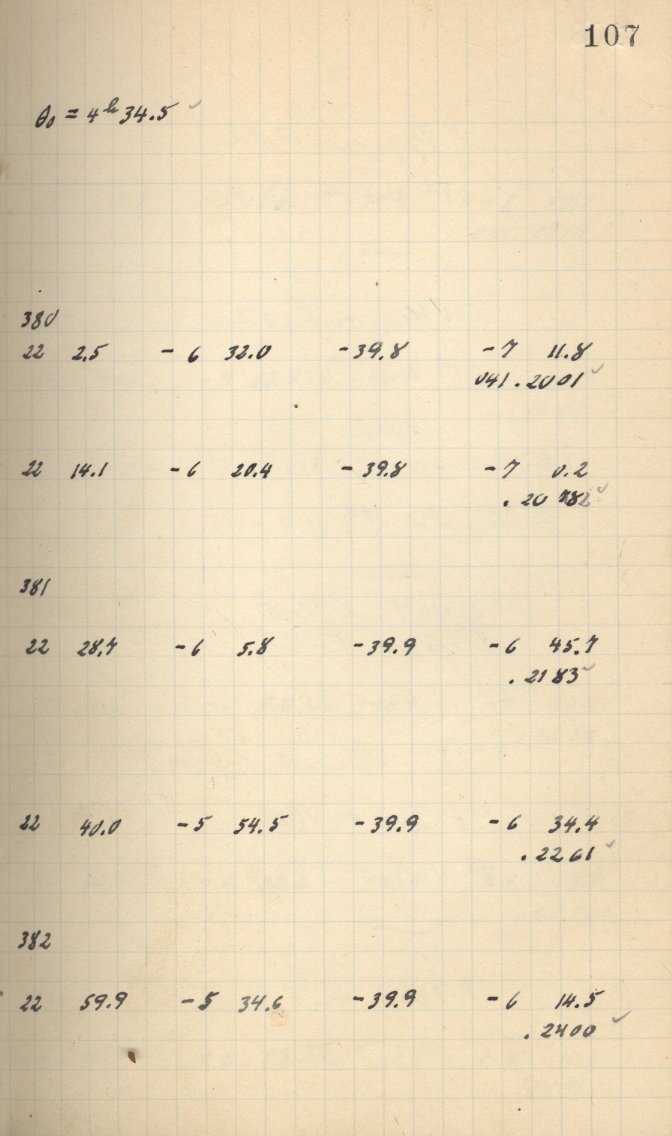 107
θ₀ = 4ʰ 34.5 ✓
380
22 2.5 - 6 32.0 -39.8 -7 11.8
041.2001 ✓
22 14.1 -6 20.4 -39.8 -7 0.2
.2082 ✓
381
22 28.7 -6 5.8 -39.9 -6 45.7
.2183 ✓
22 40.0 -5 54.5 -39.9 -6 34.4
.2261 ✓
382
22 59.9 -5 34.6 -39.9 -6 14.5
.2400 ✓